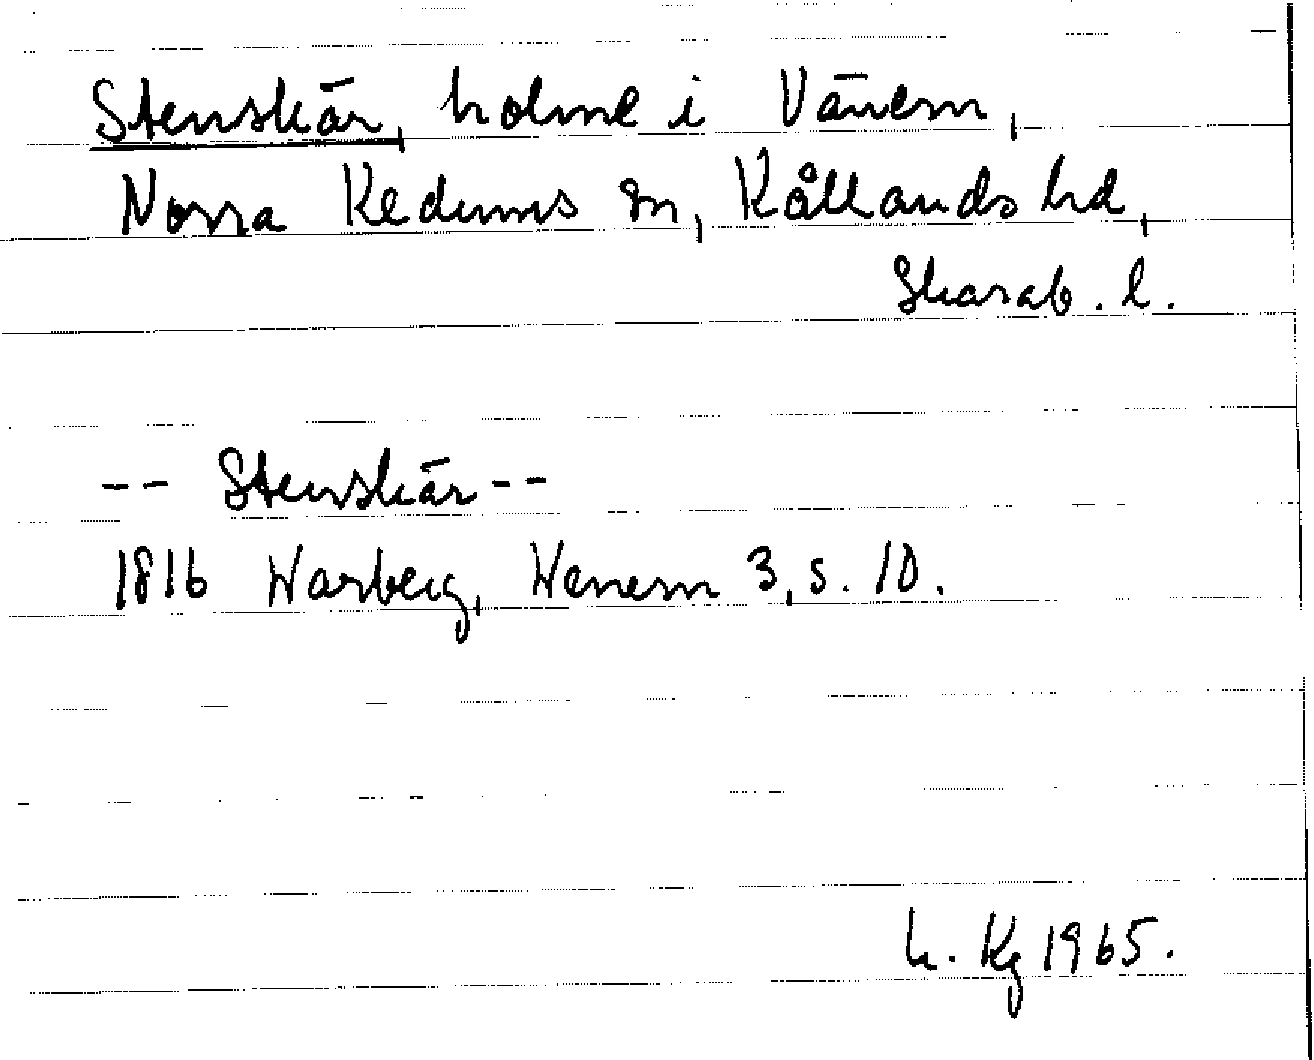 Stenskär, holme i Vänern,
Norra Kedums sn, Kållands hd,
Skarab. l.
-- Stenskär --
1816 Warberg, Wenern 3, s. 10.
h. Kg 1965.